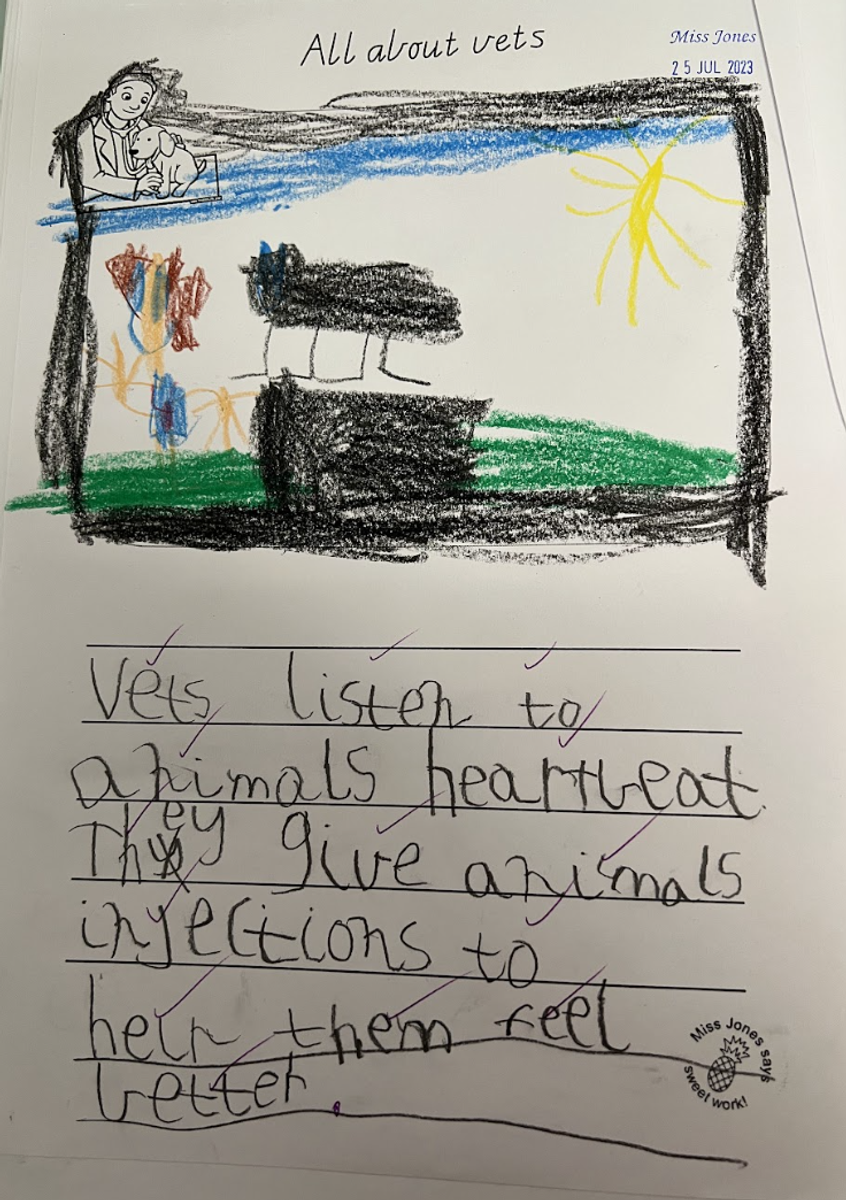 All about vets
Miss Jones
25 JUL 2023
Vets listen to
animals heartbeat.
They give animals
injections to
help them feel
better.
Miss Jones says
sweet work!